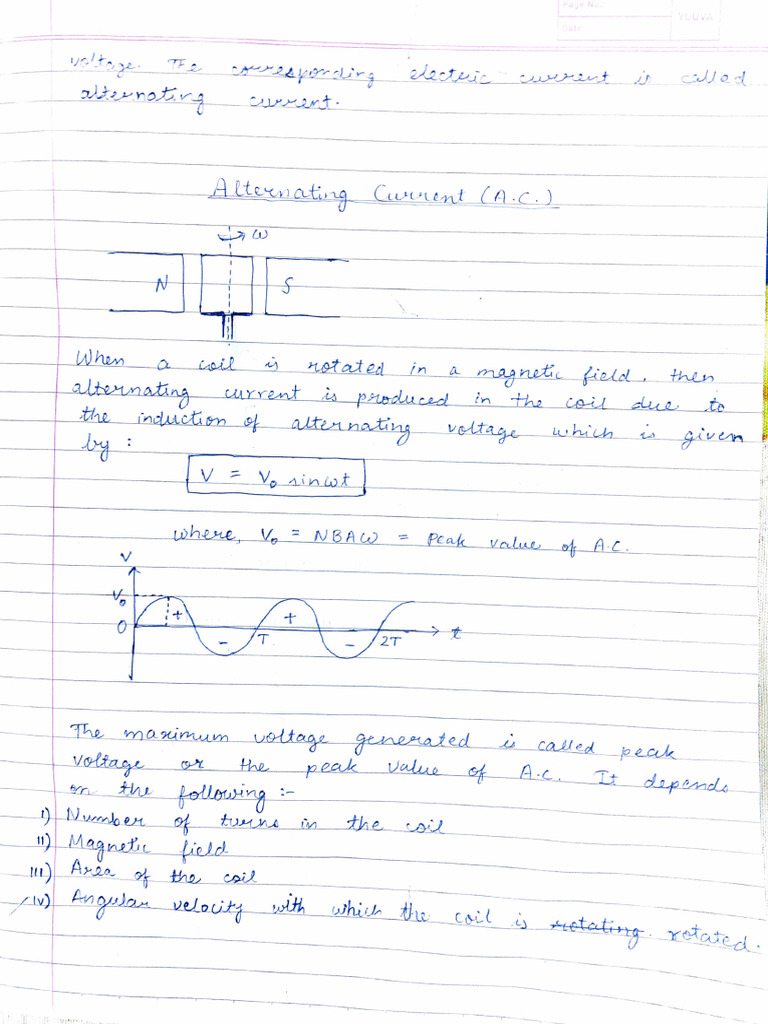 Page No.:
Date:
YOUVA
voltage. The corresponding electric current is called
alternating current.
Alternating Current (A.C.)
ω
N
S
When a coil is rotated in a magnetic field, then
alternating current is produced in the coil due to
the induction of alternating voltage which is given
by :
V = V₀ sinωt
where, V₀ = NBAω = Peak value of A.C.
V
V₀
+
+
0
-
T
-
2T
t
The maximum voltage generated is called peak
voltage or the peak value of A.C. It depends
on the following :-
I) Number of turns in the coil
II) Magnetic field
III) Area of the coil
IV) Angular velocity with which the coil is rotating. rotated.